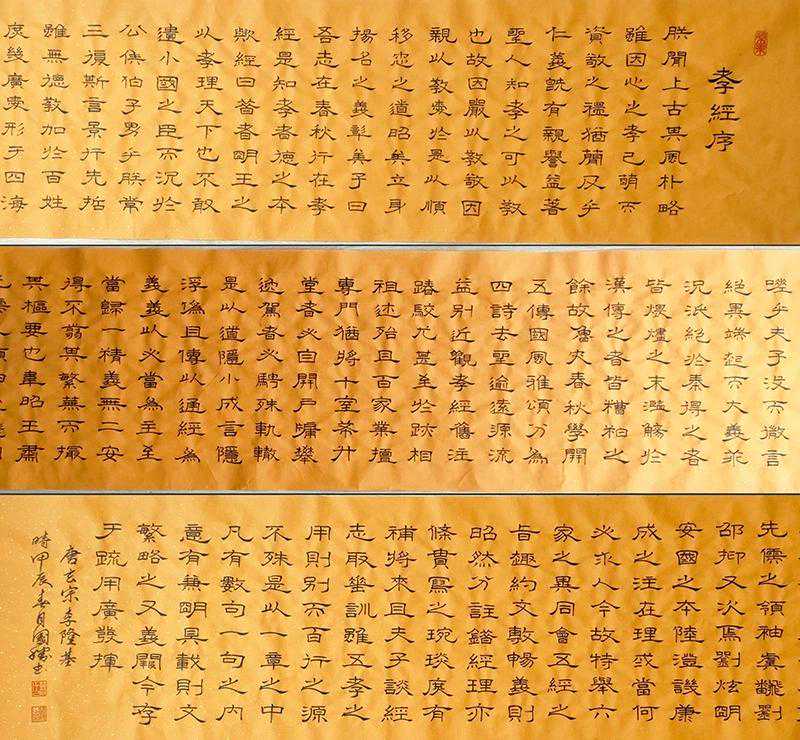 孝經序
朕聞上古其風朴略
雖因心之孝已萌而
資敬之禮猶蕳及乎
仁義旣有親譽益著
聖人知孝之可以教
也故因嚴以教敬因
親以教愛於是以順
移忠之道昭矣立身
揚名之義彰矣子曰
吾志在春秋行在孝
經是知孝者德之本
歟經曰昔者明王之
以孝理天下也不敢
遺小國之臣而況於
公侯伯子男乎朕常
三復斯言景行先哲
雖無德教加於百姓
庶幾廣愛形于四海
嗟乎夫子沒而微言
絕異端起而大義乖
況泯絕於秦得之者
皆煨燼之末濫觴於
漢傳之者皆糟粕之
餘故魯史春秋學開
五傳國風雅頌分為
四詩去聖逾遠源流
益別近觀孝經舊注
踳駮尤甚至於跡相
祖述殆且百家業擅
專門猶將十室希升
堂者必自開戶牖攀
逸駕者必騁殊軌轍
是以道隱小成言隱
浮偽且傳以通經為
義義以必當為主至
當歸一精義無二安
得不翦其繁蕪而撮
其樞要也韋昭王肅
先儒之領袖虞翻劉
邵抑又次焉劉炫明
安國之本陸澄譏康
成之注在理或當何
必求人今故特舉六
家之異同會五經之
旨趣約文敷暢義則
昭然分註錯經理亦
條貫寫之琬琰庶有
補將來且夫子談經
志取垂訓雖五孝之
用則別而百行之源
不殊是以一章之中
凡有數句一句之內
意有兼明具載則文
繁略之又義闕今存
于疏用廣發揮
唐玄宗李隆基
時甲辰春月國